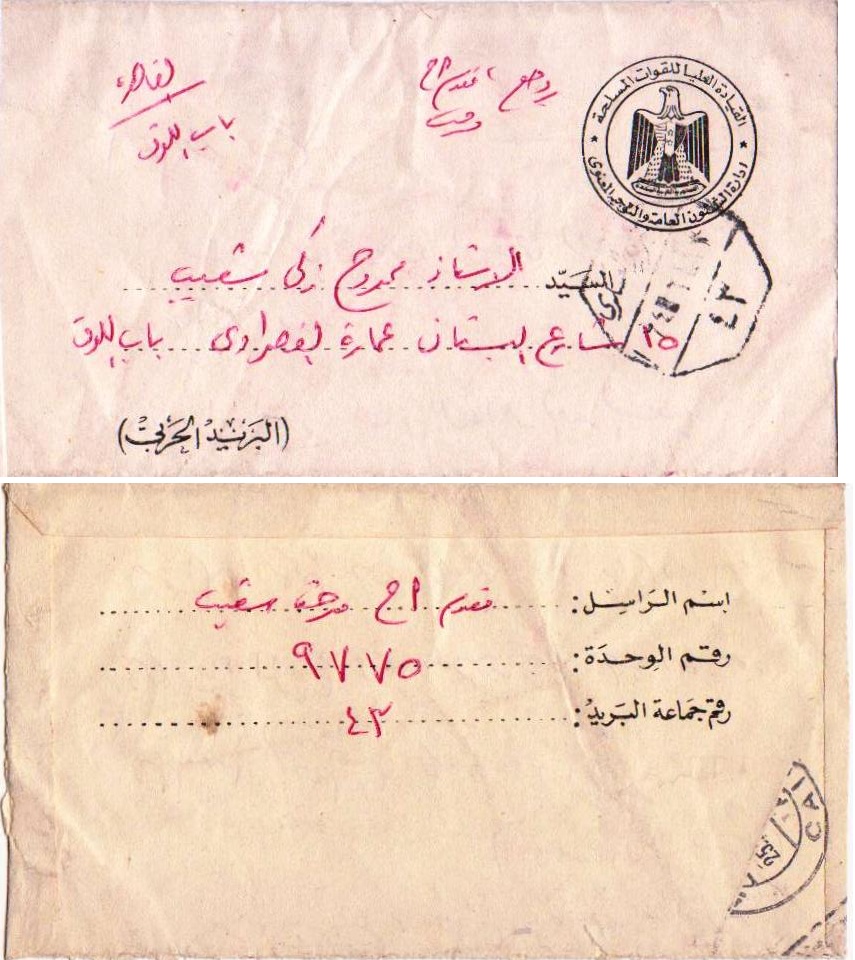 القيادة العليا للقوات المسلحة
ادارة الشئون العامة والتوجيه المعنوى
القاهرة
باب اللوق
السيد الاستاذ ممدوح زكى شعيب
٢٥ شارع البستان عمارة باب اللوق
٤٣
(البَريْد الحَرْبي)
اسم الراسل: مقدم أ ح شعيب
رقم الوحدة: ٩٧٧٥
رقم جماعة البريد: ٤٣
CAI
25